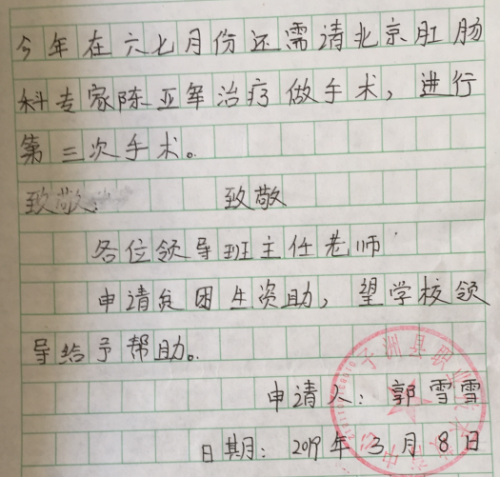 今年在六七月份还需请北京肛肠
科专家陈亚军治疗做手术，进行
第三次手术。
致敬 致敬
各位领导班主任老师
申请贫困生资助，望学校领
导给予帮助。
申请人：郭雪雪
日期：2019年3月8日
子洲县职业技术教育中心